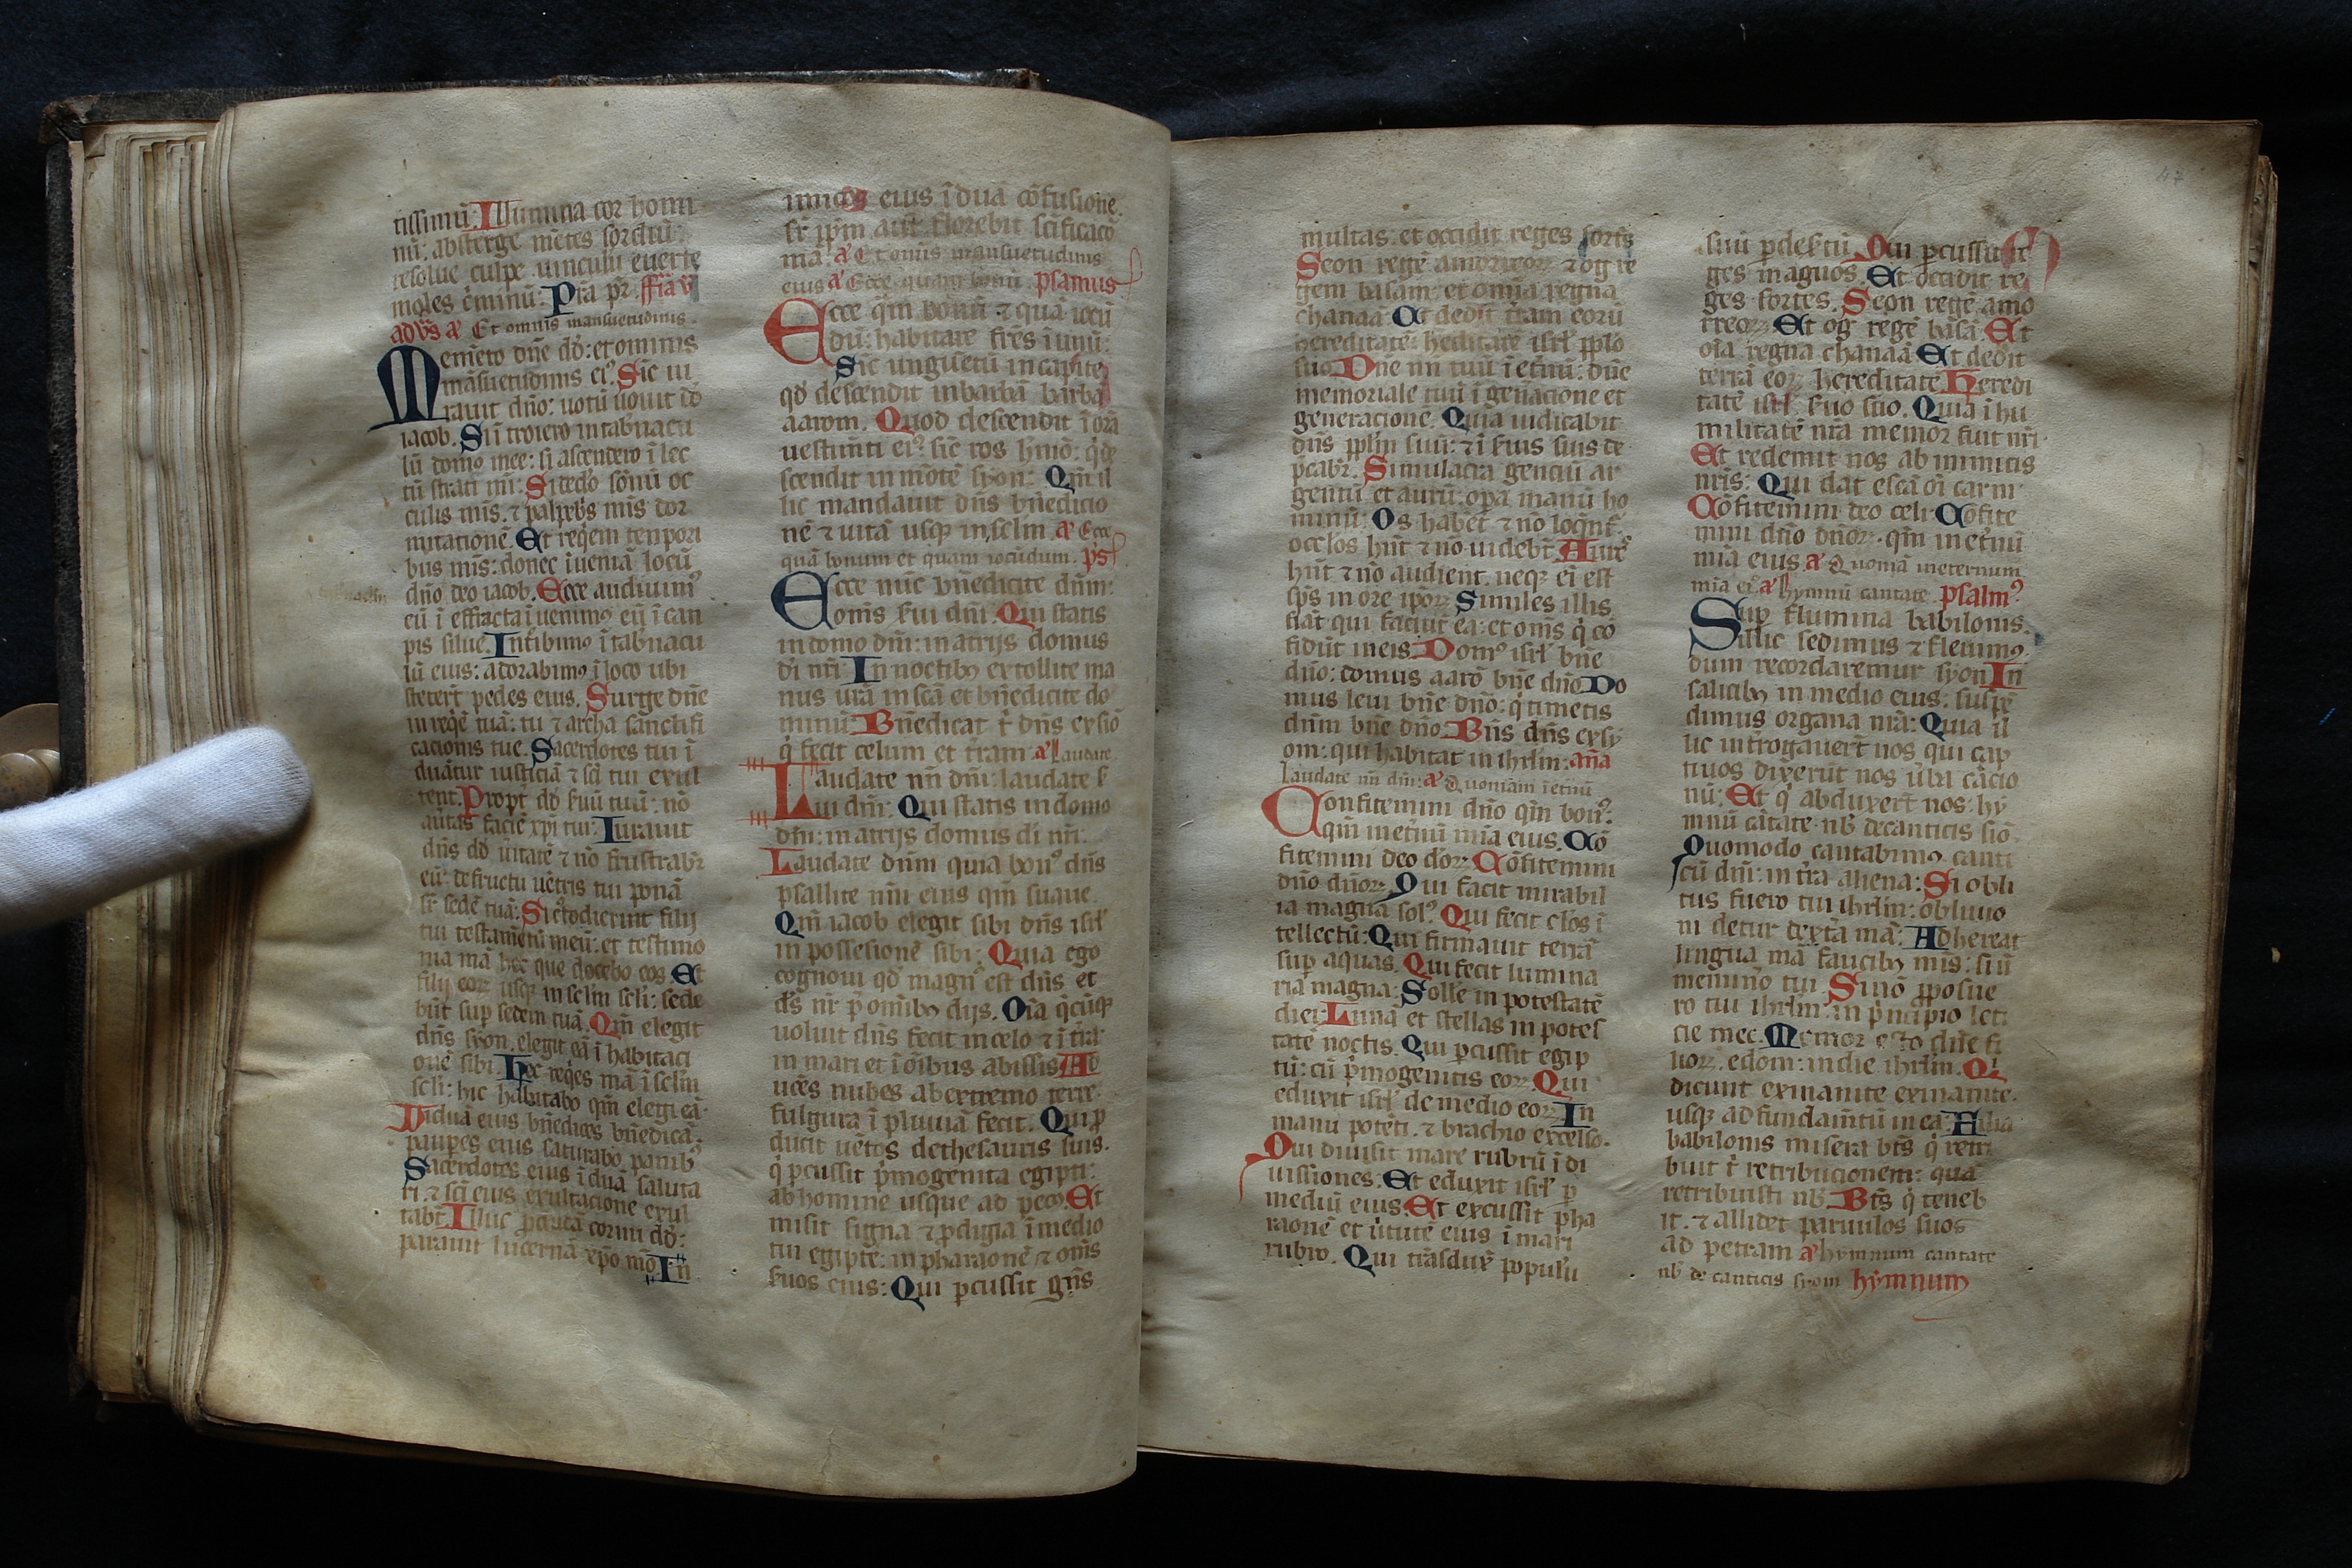 tissimū: Illumina cor homi
nū: absterge mētes sordiū:
resolue culpe uinculū euerte
moles c̄minū: Pr̄a pr̄.
ad vs̄ a᷎ Et omnis mansuetudinis.
Memēto dn̄e dd̄: et ominis
māsuetudinis eiꝰ. Sic iu
rauit dn̄o: uotū uouit dō
iacob. Si ītroiero in tab̄nacu
lū domꝰ mee: si ascendero ī lec
tū strati mī: Si dedo sōnū oc
culis mīs. ⁊ palpebs mīs dor
mitacionē. Et reqiem tempori
bus mīs: donec īueniā locū
dn̄o deo iacob. Ecce audiuimꝰ
eū ī effracta īuenimꝰ eū ī can
pis silue. Int̄ibimꝰ ī tab̄nacu
lū eius: adorabimꝰ ī loco ubi
stetert̄ pedes eius. Surge dn̄e
in reqē tuā: tu ⁊ archa sanctifi
cacionis tue. Sacerdotes tui ī
duātur iusticiā ⁊ sc̄i tui exul
tent. Propt̄ dd̄ ẜuū tuū: nō
aūtas faciē xp̄i tui: Iurauit
dn̄s dd̄ ūitatē ⁊ nō frustrabr̄
eū: de fructu uētris tui ponā
sr̄ sedē tuā: Si c̄todierint filij
tui testam̄tū meū: et testimo
nia mā hec que docebo eos Et
filij eoꝝ usqꝫ in sclm̄ scli: sede
būt sup sedem tuā. Qm̄ elegit
dn̄s syon. elegit eā ī habitaci
onē sibi. Hec reqes mā ī sclm̄
scli: hic habitabo qm̄ elegi eā.
Viduā eius bn̄edicēs bn̄edicā:
paupes eius saturabo panibꝰ
Sacerdotes eius īduā saluta
ri. ⁊ sc̄i eius exultacione exul
tabt̄. Illuc pducā cornu dd̄:
paraui lucernā xp̄o mō In
imicos eius īduā cōfusione.
sr̄ ip̄m aūt florebit sc̄ificacō
mā. a᷎ Et omīs mansuetudinis
eius a᷎ Ecce quam bonū. psamus
Ecce qm̄ bonū ⁊ quā iocū
dū: habitare fr̄es ī unū:
Sic unguētū in capite
qd̄ descendit in barbā barbā
aaron. Quod descendit ī orā
uestim̄ti eiꝰ: sic̄ ros hm̄ō: q̄ de
scendit in mōtē syon: Qm̄ il
lic mandauit dn̄s bn̄edicio
nē ⁊ uitā usqꝫ in sclm̄. a᷎ Ecce
quā bonum et quam iocūdum. ps̄
Ecce nūc bn̄edicite dn̄m:
omīs ẜui dn̄i. Qui statis
in domo dn̄i: in atrijs domus
dī nr̄i In noctibꝫ extollite ma
nus ur̄a in sc̄ā et bn̄edicite do
minū: Bn̄edicat t̄ dn̄s ex siō
q̄ fecit celum et t̄ram a᷎ Laudate
Laudate nn̄ dn̄i: laudate ẜ
ui dn̄i: Qui statis in domo
dn̄i: in atrijs domus dī nr̄i.
Laudate dn̄m quia bonꝰ dn̄s
psallite nn̄i eius qm̄ suaue.
Qm̄ iacob elegit sibi dn̄s isrl̄
in possesionē sibi: Quia ego
cognoui qd̄ magnꝰ est dn̄s et
ds̄ nr̄ p̄ omībꝫ dijs. Oīa qcūqꝫ
uoluit dn̄s fecit in celo ⁊ ī tr̄a:
in mari et ī ōībus abissis Ad
ucēs nubes ab extremo terre.
fulgura ī pluuiā fecit. Qui p
ducit uētos de thesauris suis.
q̄ pcussit pmogenita egipti:
ab homine usque ad pecꝰ. Et
misit signa ⁊ pdigia ī medio
tui egipte: in pharaonē ⁊ om̄s
ẜuos eius: Qui pcussit gn̄s
multas. et occidit reges fortꝭ
Seon regē amorreoꝝ ⁊ og re
gem basam: et omīa regna
chanaā Et dedit tr̄am eorū
hereditatē: heditatē isrl̄ pplo
suo Dn̄e nn̄ tuū ī et̄nū: dn̄e
memoriale tuū ī gen̄acione et
generacione. Quia iudicabit
dn̄s pplm̄ suū: ⁊ ī ẜuis suis de
pcabr̄. Simulacra genciū ar
gentū et aurū: opa manū ho
minū: Os habēt ⁊ nō loqn̄t.
occlos hn̄t ⁊ nō uidebt̄ Aures
hn̄t ⁊ nō audient. neqꝫ ei est
sps̄ in ore ipoꝝ. Similes illis
fiāt qui faciūt ea: et omīs q̄ cō
fidūt in eis. Domꝰ isrl̄ bn̄e
dn̄o: domus aarō bn̄e dn̄o Do
mus leui bn̄e dn̄o: q̄ timetis
dn̄m bn̄e dn̄o. Bn̄s dn̄s ex sy
on: qui habitat in ihrlm̄: an̄a
Laudate nn̄ dn̄i: a᷎ Quoniam ī et̄nū
Confitemini dn̄o qm̄ bonꝰ:
qm̄ in et̄nū mīa eius. Cō
fitemini deo deoꝝ: Cōfitemini
dn̄o dn̄oꝝ: Qui facit mirabil
ia magna solꝰ. Qui fecit celos ī
tellectū: Qui firmauit terrā
sup aquas. Qui fecit lumina
ria magna: Solle in potestatē
diei: Lunā et stellas in potes
tatē noctis. Qui pcussit egip
tū: cū pmogenitis eoꝝ. Qui
eduxit isrl̄ de medio eoꝝ: In
manu potēti. ⁊ brachio excelso.
Qui diuisit mare rubrū ī di
uisiōnes. Et eduxit isrl̄ p
mediū eius. Et excussit pha
raonē et ūtutē eius ī mari
rubro. Qui trāsduxꝰ populū
suū p desertū. Qui pcussit re
ges magnos. Et occidit re
ges fortes. Seon regē amo
rreoꝝ Et og regē basā. Et
oīa regna chanaā Et dedit
terrā eoꝝ hereditatē. Heredi
tatē isrl̄ ẜuo suo. Quia ī hu
militatē nr̄a memor fuit nr̄i
Et redemit nos ab inimicis
nr̄is: Qui dat escā oī carni
Cōfitemini deo celi: Cōfite
mini dn̄o dn̄oꝝ. qm̄ in et̄nū
mīa eius a᷎ Quoniā in eternum
mīa eiꝰ a᷎ hymnū cantate psalmꝰ
Sup flumina babilonis.
illic sedimus ⁊ fleuimꝰ:
dum recordaremur syon In
salicibꝫ in medio eius: suspē
dimus organa nr̄a: Quia il
lic int̄rogauert̄ nos qui cap
tiuos dixerūt nos ūba cācio
nū: Et q̄ abduxert̄ nos: hy
mnū cātate nb̄ de canticis siō
Quomodo cantabimꝰ canti
cū dn̄i: in tr̄a aliena: Si obli
tus fuero tui ihrlm̄: obliuio
ni detur dext̄a mā: Adhereat
lingua mā faucibꝫ mīs: si ū
memiño tui Si nō pposue
ro tui ihrlm̄: in pncipio leti
cie mee. Memor esto dn̄e fi
lioꝝ. edom: in die ihrlm̄. Qi
dicunt exinanite exinanite:
usqꝫ ad fundam̄tū in ea: Filia
babilonis misera bt̄s q̄ retri
buit t̄ retribucionem: quā
retribuisti nb̄. Bt̄s q̄ teneb
it. ⁊ allidet paruulos suos
ad petram a᷎ hymnum cantate
nb̄ de canticis syom hymnum
47